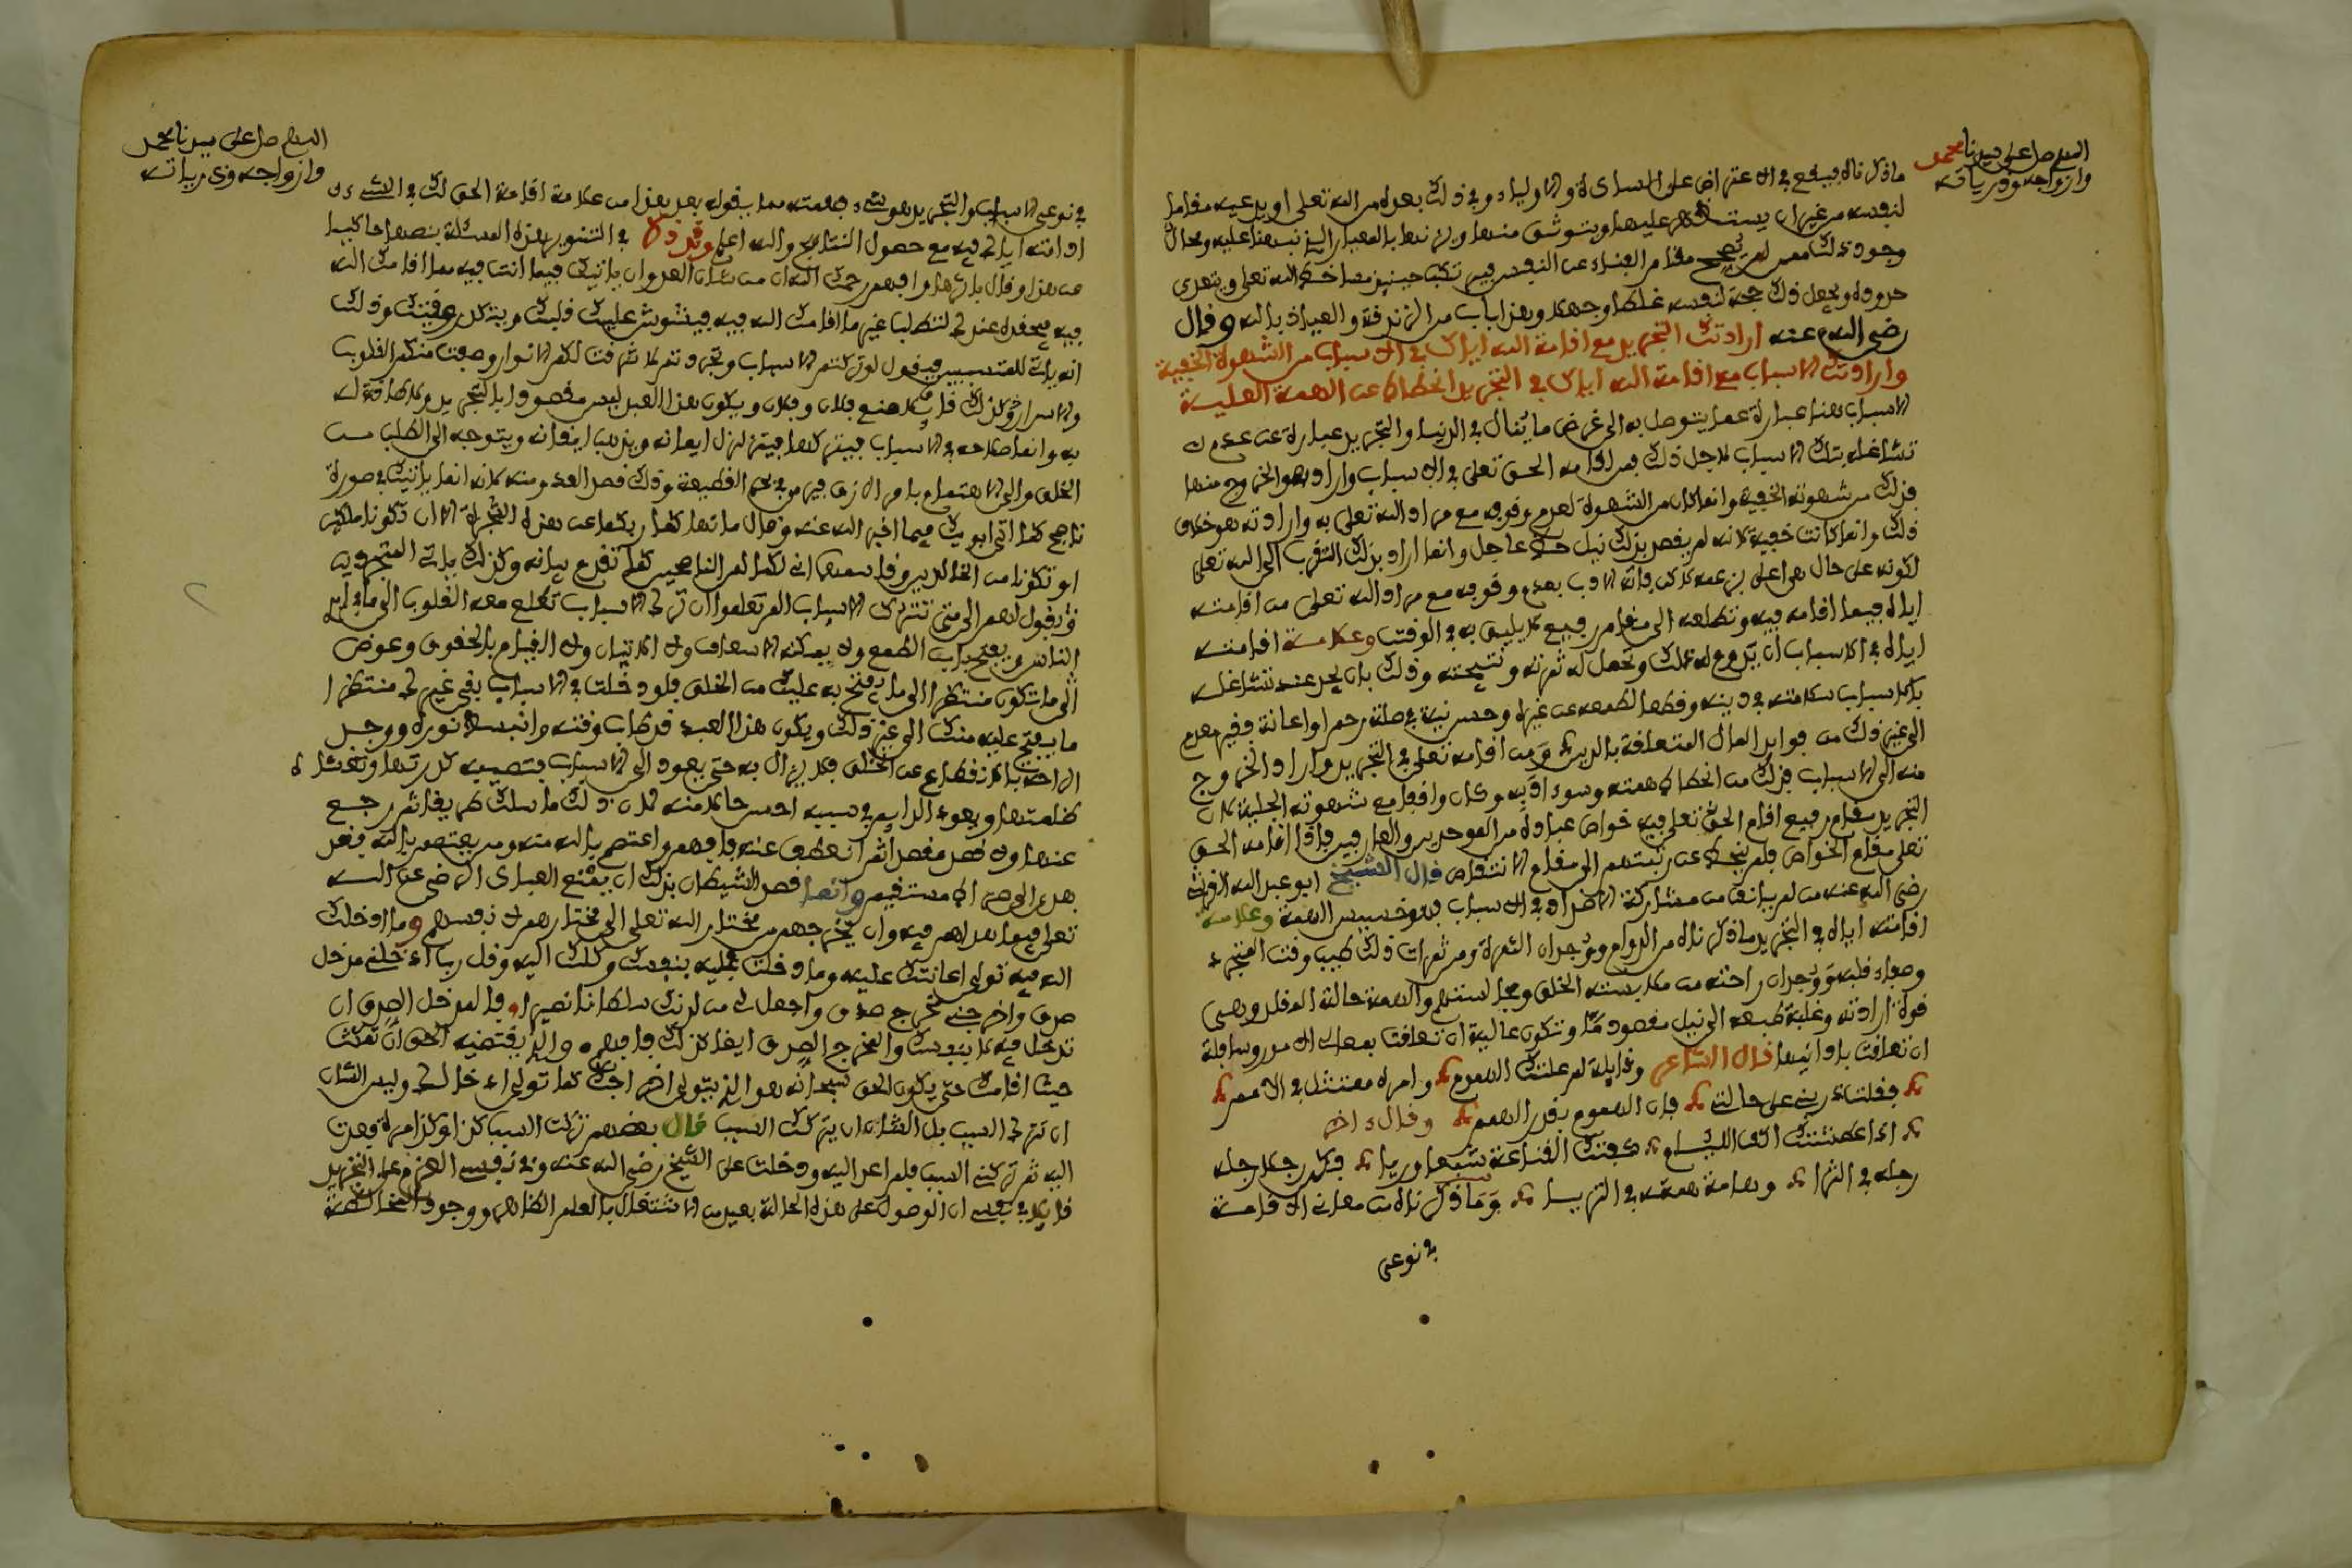 اللهم صل على سيدنا محمد
وازواجه وذرياته
ماذكرناه فيقع في الاعتراض على السادة والاولياء وفي ذلك بعده من الله تعلى او يدعيه مقاما
لنفسه من غير ان يستظهر عليها ويتوثق منها ويزنها بالمعيار الذي نبهنا عليه ومحال
وجود ذلك ممن لم يصحح مقام الفناء عن النفس فيرتكب حينئذ مساخط الله تعلى ويتعدى
حدوده ويجعل ذلك حجة لنفسه غلطا وجهلا وهذا باب من الزندقة والعياذ بالله وقال
رضي الله عنه ارادتك التجريد مع اقامة الله اياك في الاسباب من الشهوة الخفية
وارادتك الاسباب مع اقامة الله اياك في التجريد انحطاط عن الهمة العلية
الاسباب هنا عبارة عما يتوصل به الى غرض ما ينال في الدنيا والتجريد عبارة عن عدم
تشاغله بتلك الاسباب لاجل ذلك فمن اقامه الحق تعلى في الاسباب واراد هو الخروج منها
فذلك من شهوته الخفية وانما كان من الشهوة لعدم وقوفه مع مراد الله تعلى به وارادته هو خلاف
ذلك وانما كانت خفية لانه لم يقصد بذلك نيل حظ عاجل وانما اراد بذلك التقرب الى الله تعلى
لكونه على حال هي اعلى بزعمه لاكن فاته الادب بعدم وقوفه مع مراد الله تعلى من اقامته
اياه فيما اقامه فيه وتطلعه الى مقام رفيع لا يليق به في الوقت وعلامة اقامته
اياه في الاسباب ان يدوم له ذلك وتحصل له ثمرته ونتيجته وذلك بان يجد عند تشاغله
بالاسباب سلامة في دينه وقطعا لطمعه عن غيره وحسن نية في صلة رحم او اعانة فقير معدم
الى غير ذلك من فوايد المال المتعلقة بالدين ومن اقامه تعلى في التجريد واراد الخروج
منه الى الاسباب فذلك من انحطاط همته وسوء ادبه وكان واقفا مع شهوته الجلية لان
التجريد مقام رفيع اقام الحق تعلى فيه خواص عباده من الموحدين والعارفين فاذا اقامه الحق
تعلى مقام الخواص فلم ينحط عن رتبتهم الى مقام الانتقاص قال الشيخ ابو عبد الله القرشي
رضي الله عنه من لم يانف من مشاركة الاضداد في الاسباب فهو خسيس الهمة وعلامة
اقامته اياه في التجريد ماذكرناه من الدوام ووجدان الثمرة ومن ثمرات ذلك طيب وقت المتجرد
وصفاء قلبه ووجدان راحته من ملابسة الخلق ومجالستهم والهمة حالة القلب وهي
قوة ارادة وغلبة طمعه الى نيل مقصود ما وتكون عالية ان تعلقت بمعالي الامور وسافلة
ان تعلقت بادانيها قال الشاعر وقايلة لم علتك الهموم وامرك ممتثل في الامم
فقلت ذريني على حالتي فان الهموم بقدر الهمم وقال ءاخر
اذا اعطشتك اكف الليام كفتك القناعة شبعا وريا فكن رجلا رجله
رجله في الثرا وهامة همته في الثريا وما ذكرناه من معاني الاقامة
في نوعي
اللهم صل على سيدنا محمد
وازواجه وذرياته
في نوعي الاسباب والتجريد هو شيء فهمته مما يقوله بعد هذا من علامة اقامة الحق لك في الشيء
ادامته اياك فيه مع حصول النتائج والله اعلم وقد ذكر في التنوير هذه المسئلة بنصها حاكيا
عن هذا وقال بلاثرها وافهم رحمك الله ان من شان العدو ان ياتيك فيما انت فيه مما اقامك الله
فيه فيحقره عندك لتطلب غير ما اقامك الله فيه فيشوش عليك قلبك ويتكدر وقتك وذلك
انه ياتي للمتسببين فيقول لو تركتم الاسباب وتجردتم لاشرقت لكم الانوار وصفت منكم القلوب
والاسرار وكذلك صنع فلان وفلان ويكون هذا العبد ليس مقصودا بالتجريد ولا طاقة له
به وانما صلاحه في الاسباب فيتركها فيتزلزل ايمانه ويذهب ايقانه ويتوجه الى الطلب من
الخلق والى الاهتمام بامر الرزق فيرمى في بحر القطيعة وذلك قصد العدو منه لانه انما ياتيك في صورة
ناصح كما اتى ابويك فيما اخبر الله عنه وقال ما نهاكما ربكما عن هذه الشجرة الا ان تكونا ملكين
او تكونا من الخالدين وقاسمهما اني لكما لمن الناصحين كما تقدم بيانه وكذلك ياتي المتجردين
ويقول لهم الى متى تتركون الاسباب الم تعلموا ان ترك الاسباب تطلع معه القلوب الى ما في ايدي
الناس ويفتح باب الطمع ولا يمكنك الاسعاف ولا الايثار ولا القيام بالحقوق وعوض
الى ما تكون منتظرا الى ما يفتح به عليك من الخلق فلو دخلت في الاسباب بقي غيرك منتظرا
ما يفتح عليه منك الى غير ذلك ويكون هذا العبد قد طاب وقته وانبسط نوره ووجد
الراحة بالانقطاع عن الخلق فلا يزال به حتى يعود الى الاسباب فتصيبه كدرتها وتغشاه
ظلمتها ويعود الدايم في سببه احسن حالا منه لان ذلك ما سلك طريقا ثم رجع
عنها ولا قصد مقصدا ثم انعطف عنه فافهم واعتصم بالله منه ومن يعتصم بالله فقد
هدي الى صراط مستقيم وانما قصد الشيطان بذلك ان يمنع العباد الرضى عن الله
تعلى فيما هم فيه وان يخرجهم من مختار الله تعلى الى مختارهم لانفسهم وما ادخلك
الله فيه تولى اعانتك عليه وما دخلت فيه بنفسك وكلك اليه وقل رب ادخلني مدخل
صدق واخرجني مخرج صدق واجعل لي من لدنك سلطانا نصيرا فالمدخل الصدق ان
تدخل فيه لا بنفسك والمخرج الصدق ايضا كذلك فافهم والذي يقتضيه الحق ان تمكث
حيث اقامك حتى يكون الحق سبحانه هو الذي يتولى اخراجك كما تولى ادخالك وليس الشان
ان تترك السبب بل الشان ان يتركك السبب قال بعضهم تركت السبب كذا وكذا مرة فعدت
اليه ثم تركني السبب فلم اعد اليه ودخلت على الشيخ رضي الله عنه وفي نفسي العزم على التجريد
قايلا في نفسي ان الوصول على هذه الحالة بعيد من الاشتغال بالعلم الظاهر ووجود المخالطة